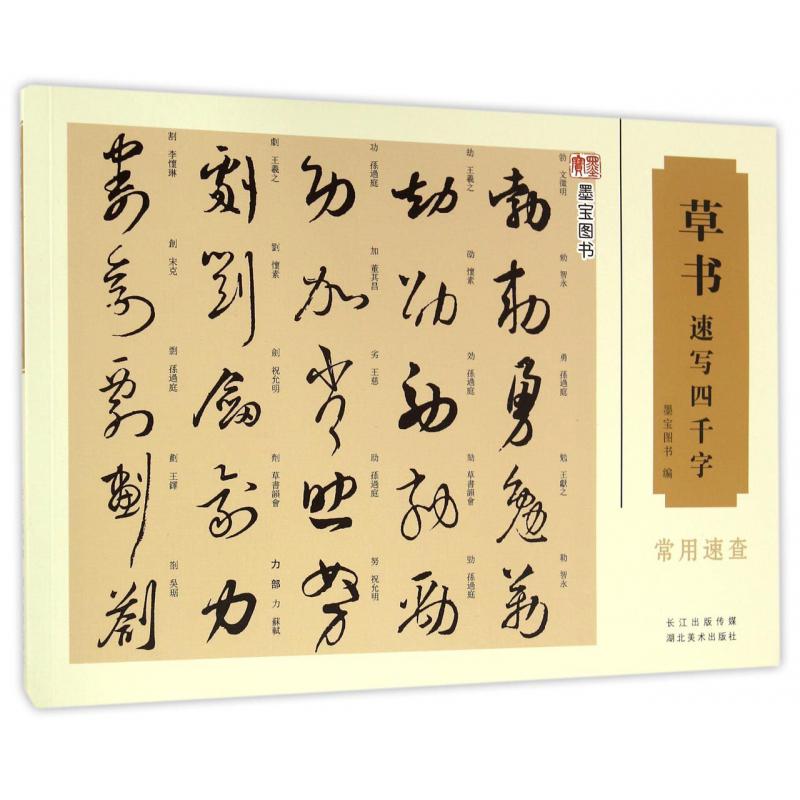 草书
速写四千字
墨宝图书 编
常用速查
长江出版传媒
湖北美术出版社
墨寶
墨宝图书
割 李懷琳
創 宋克
剽 孫過庭
劃 王鐸
劄 吳琚
劇 王羲之
劉 懷素
劍 祝允明
劑 草書韻會
力部 力 蘇軾
功 孫過庭
加 董其昌
劣 王慈
助 孫過庭
努 祝允明
王羲之
劭 懷素
効 孫過庭
劾 草書韻會
勁 孫過庭
勃 文徵明
勑 智永
勇 孫過庭
勉 王獻之
勒 智永